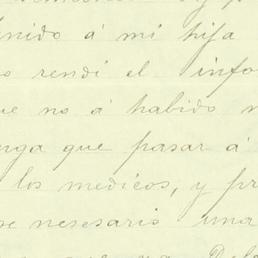 nido á mi hija
rendi el info
que no á habido
nga que pasar á
los medicos, y pr
nesesaris una